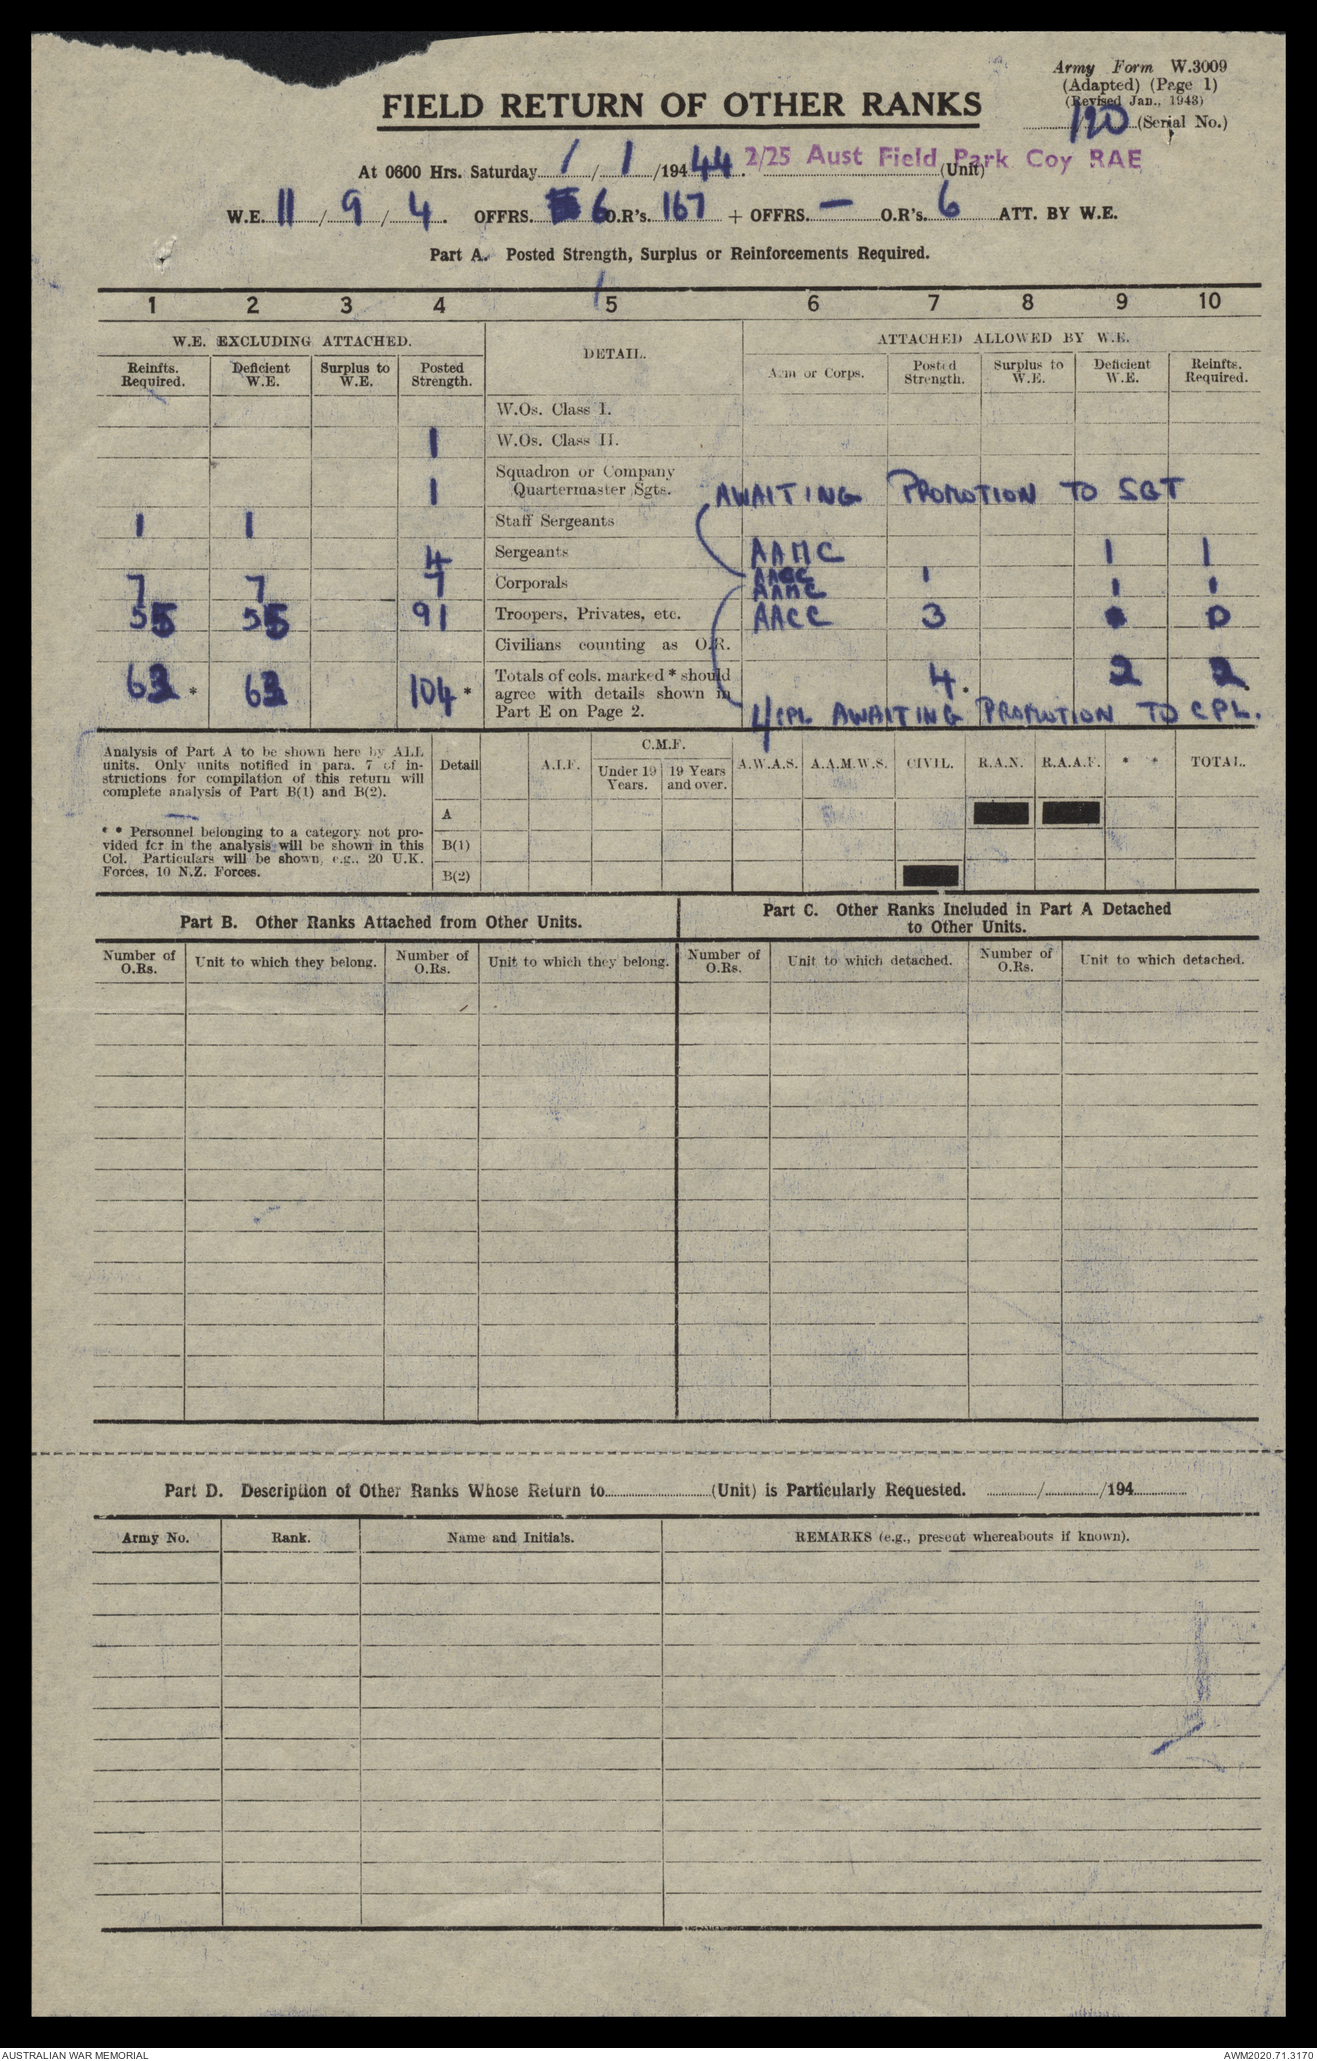 Army Form W.3009
(Adapted) (Page 1)
(Revised Jan., 1943)
120 (Serial No.)
FIELD RETURN OF OTHER RANKS
At 0600 Hrs. Saturday 1/1/1944 44. 2/25 Aust Field Park Coy RAE (Unit)
W.E. 11/9/4. OFFRS. 6 O.R's. 167 + OFFRS. — O.R's. 6 ATT. BY W.E.
Part A. Posted Strength, Surplus or Reinforcements Required.
1 2 3 4 5 6 7 8 9 10
W.E. EXCLUDING ATTACHED. DETAIL. ATTACHED ALLOWED BY W.E.
Reinfts. Required. Deficient W.E. Surplus to W.E. Posted Strength. Arm or Corps. Posted Strength. Surplus to W.E. Deficient W.E. Reinfts. Required.
W.Os. Class I.
1 W.Os. Class II.
1 Squadron or Company Quartermaster Sgts. AWAITING PROMOTION TO SGT
1 1 Staff Sergeants
4 Sergeants AAMC 1 1
7 7 7 Corporals AACC 1
AAMC 1 1
55 55 91 Troopers, Privates, etc. AACC 3 0
Civilians counting as O.R.
62 * 62 104 * Totals of cols. marked * should agree with details shown in Part E on Page 2. 4. 2 2
L/CPL AWAITING PROMOTION TO CPL.
Analysis of Part A to be shown here by ALL
units. Only units notified in para. 7 of in-
structions for compilation of this return will
complete analysis of Part B(1) and B(2).
* * Personnel belonging to a category not pro-
vided for in the analysis will be shown in this
Col. Particulars will be shown, e.g., 20 U.K.
Forces, 10 N.Z. Forces.
Detail A.I.F. C.M.F. Under 19 Years. 19 Years and over. A.W.A.S. A.A.M.W.S. CIVIL. R.A.N. R.A.A.F. * * TOTAL.
A
B(1)
B(2)
Part B. Other Ranks Attached from Other Units.
Part C. Other Ranks Included in Part A Detached
to Other Units.
Number of O.Rs. Unit to which they belong. Number of O.Rs. Unit to which they belong. Number of O.Rs. Unit to which detached. Number of O.Rs. Unit to which detached.
Part D. Description of Other Ranks Whose Return to (Unit) is Particularly Requested. / /194
Army No. Rank. Name and Initials. REMARKS (e.g., present whereabouts if known).
AUSTRALIAN WAR MEMORIAL AWM2020.71.3170